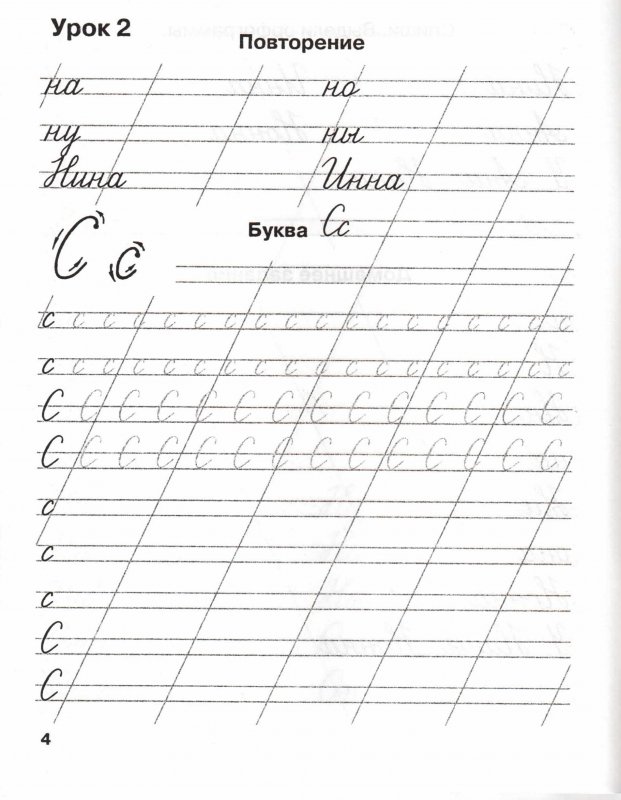 Урок 2
Повторение
на но
ну ны
Нина Инна
Буква Сс
С с
с с с с с с с с с с с с с с с с с с
с с с с с с с с с с с с с с с с с с
С С С С С С С С С С С С С С
С С С С С С С С С С С С С С
с
с
с
С
С
4